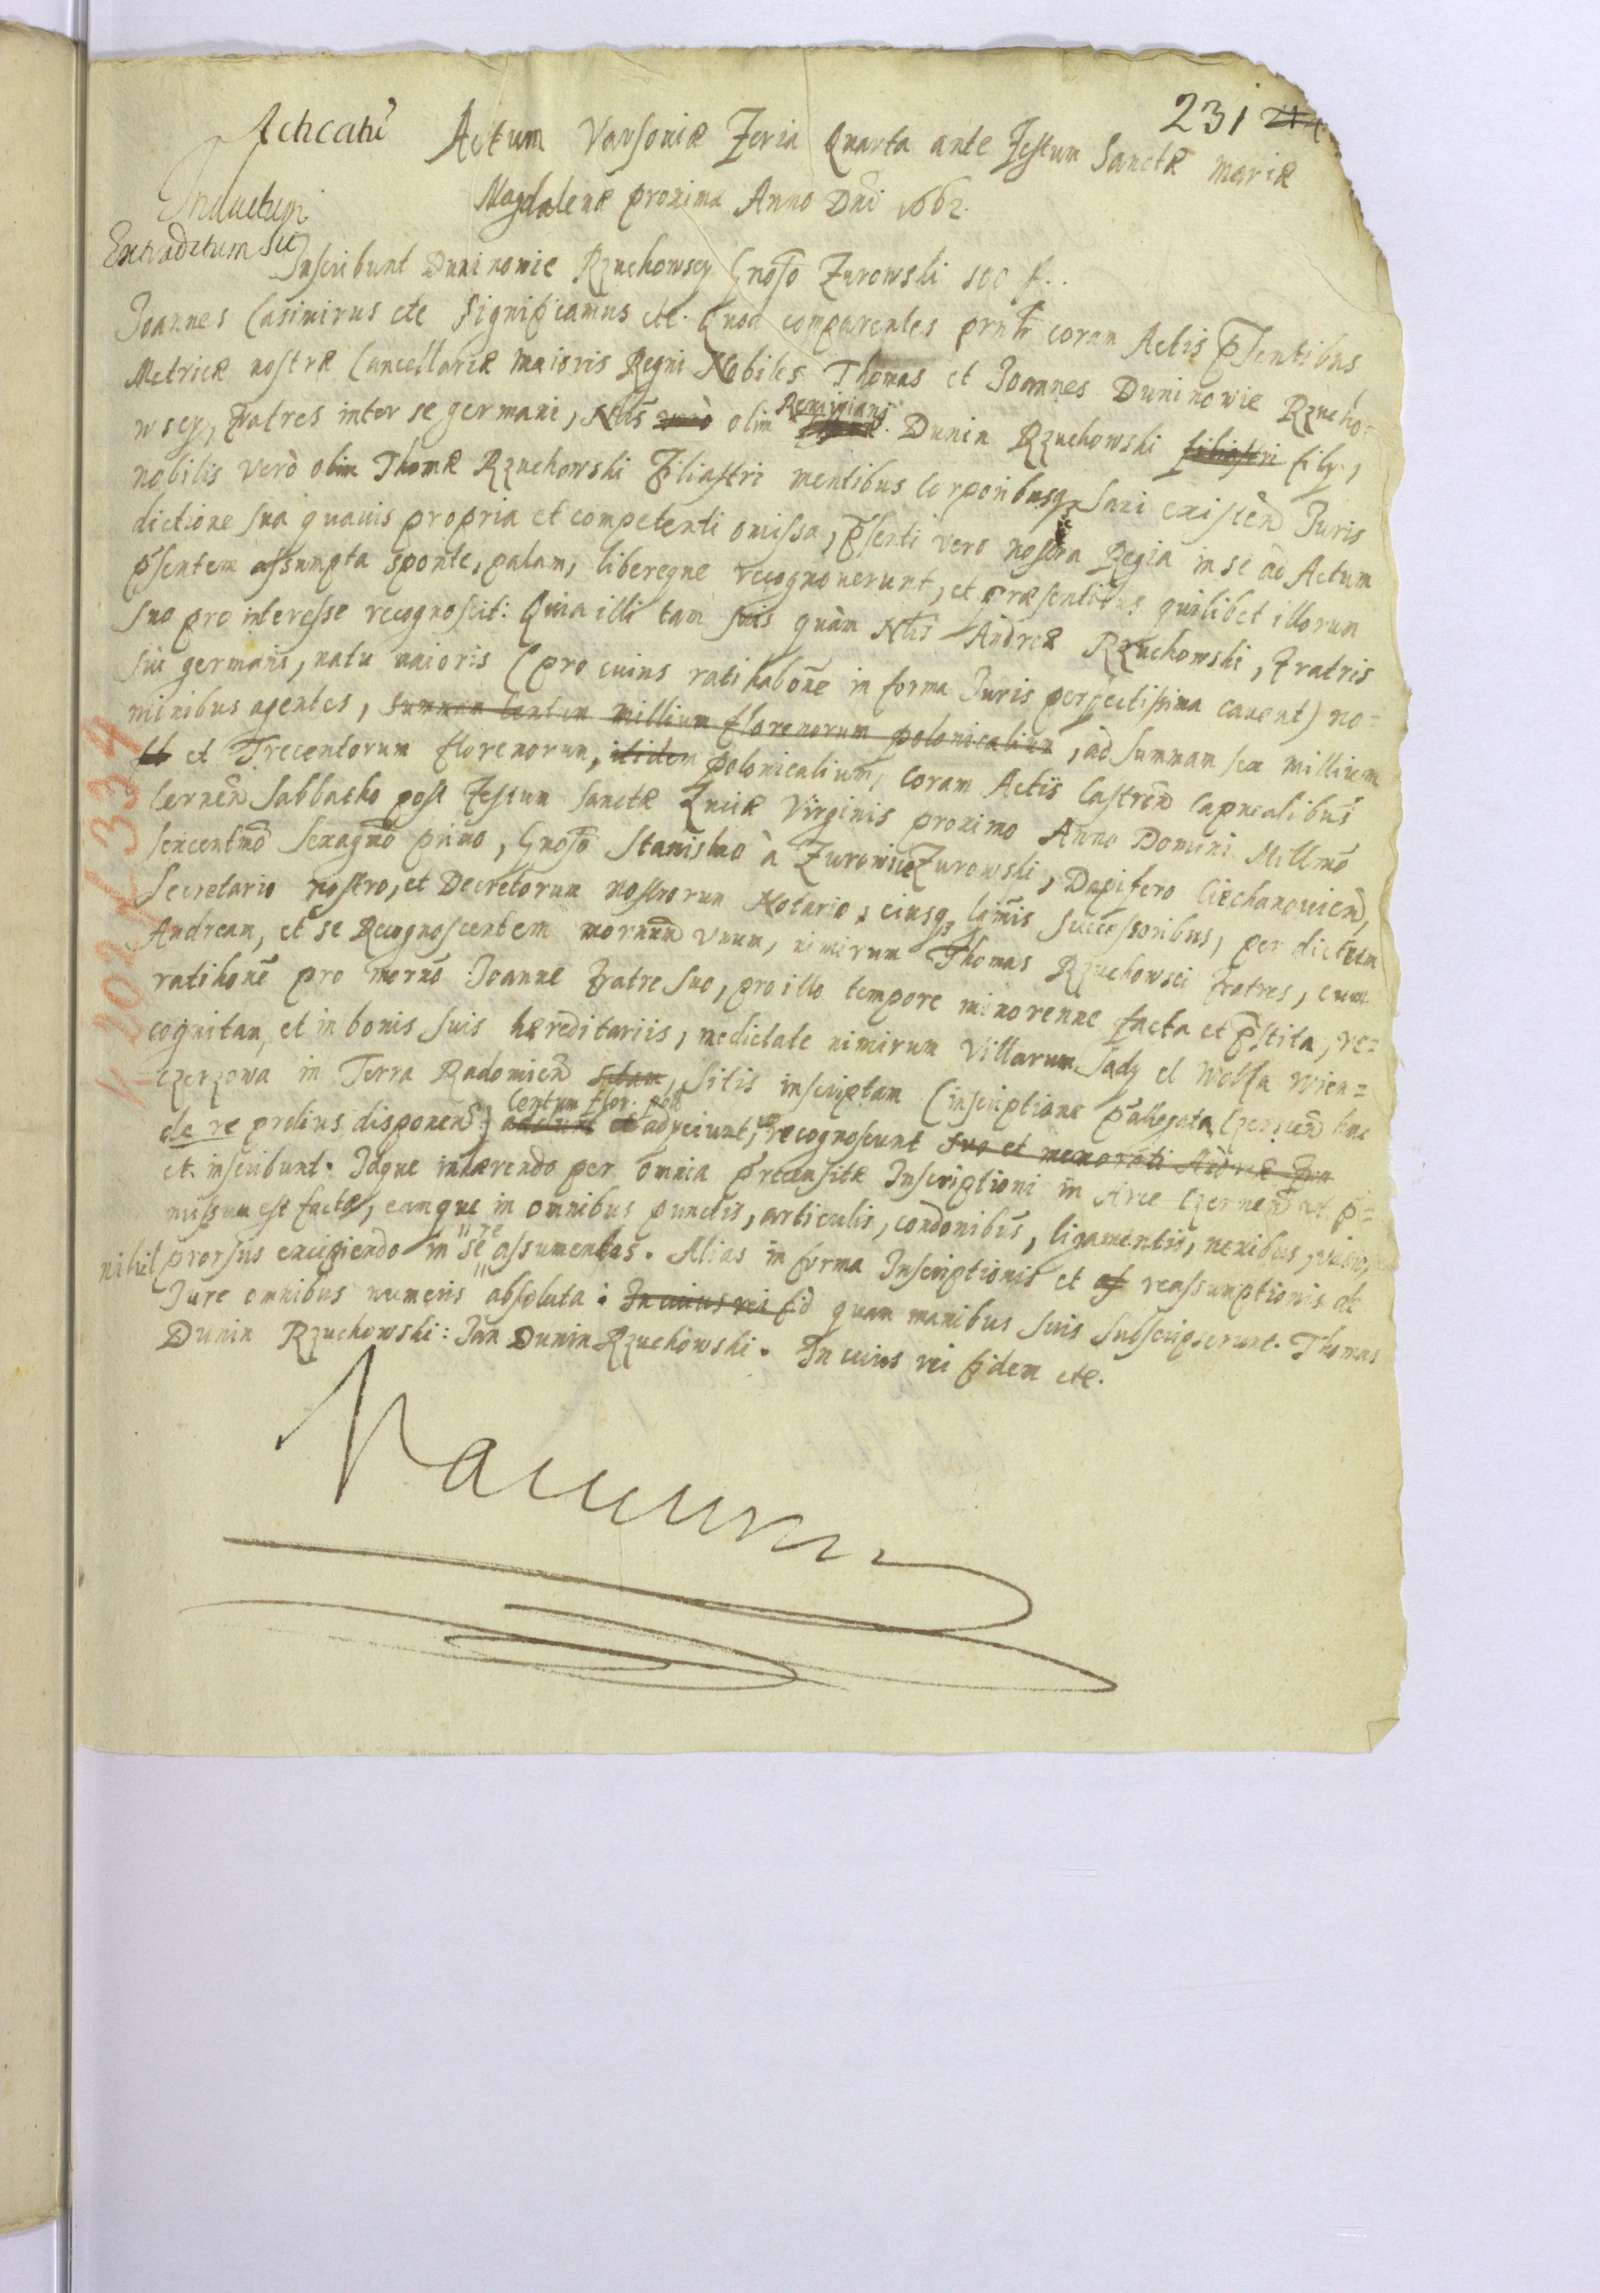 231
Acticatū
Actum Varsoniæ Feria Quarta ante Festum Sanctæ Mariæ
Magdalenæ proxima Anno Dni 1662.
Inductum
Extraditum sic
Inscribunt Duninowie Rzuchowscy Gnoso Zurowski 100 f.
Joannes Casimirus etc significamus etc. Quod comparentes prntr coram Actis p̄sentibus
Metricæ nostræ Cancellariæ maioris Regni Nobiles Thomas et Joannes Duninowie Rzucho=
wscy, fratres inter se germani, Nblis olim Dunin Rzuchowski filiastri filij,
nobilis verò olim Thomæ Rzuchowski Filiastri mentibus corporibusq sani existen Juris
dictione sua quavis propria et competenti omissa, p̄senti vero nostra Regia in se ad Actum
p̄sentem assumpta sponte, palam, libereque recognoverunt, et præsentibus quilibet illorum
suo pro interesse recognoscit: Quia illi tam suis quàm Nblis Andreæ Rzuchowski, Fratris
sui germani, natu maioris (pro cuius ratihabōne in forma Juris perfectissima cavent) no=
minibus agentes, summam centum millium florenorum polonicalium, ad summam sex millium
et Trecentorum florenorum, itidem polonicalium, coram Actis Castren Capnealibus
Cernen Sabbatho post Festum Sanctæ Luciæ Virginis proximo Anno Domini Millmo
sexcentmo sexagmo primo, Gnoso Stanislao à Zurowice Zurowski, Dapifero Ciechanovien,
Secretario nostro, et Decretorum nostrorum Notario, eiusq ltimis successoribus, per dictum
Andream, et se Recognoscentem unum, nimirum Thomas Rzuchowsci fratres, cum
ratihōne pro Joanne Fratre suo, pro illo tempore minorenne facta et p̄stita, re=
cognitam, et in bonis suis hæreditariis, medietate nimirum Villarum Sady et Wolka Wien=
czerzowa in Terra Radomien sitis inscriptam (inscriptione p̄allegata Czernen hac
de re prolius disponen) centum flor. poll adyciunt, recognoscunt suo et memorati Andreæ
et inscribunt. Idque inhærendo per omnia p̄recensitæ Inscriptioni in Arce Czernen ut p̄=
missum est factæ, eamque in omnibus punctis, articulis, condonibus, ligamentis, nexibus,
nihil prorsus excipiendo in se re assumentes. Alias in forma Inscriptionis et reassumptionis de
Jure omnibus numeris absoluta: In cuius rei fid quam manibus suis subscripserunt. Thomas
Dunin Rzuchowski: Jan Dunin Rzuchowski. In cuius rei fidem etc.